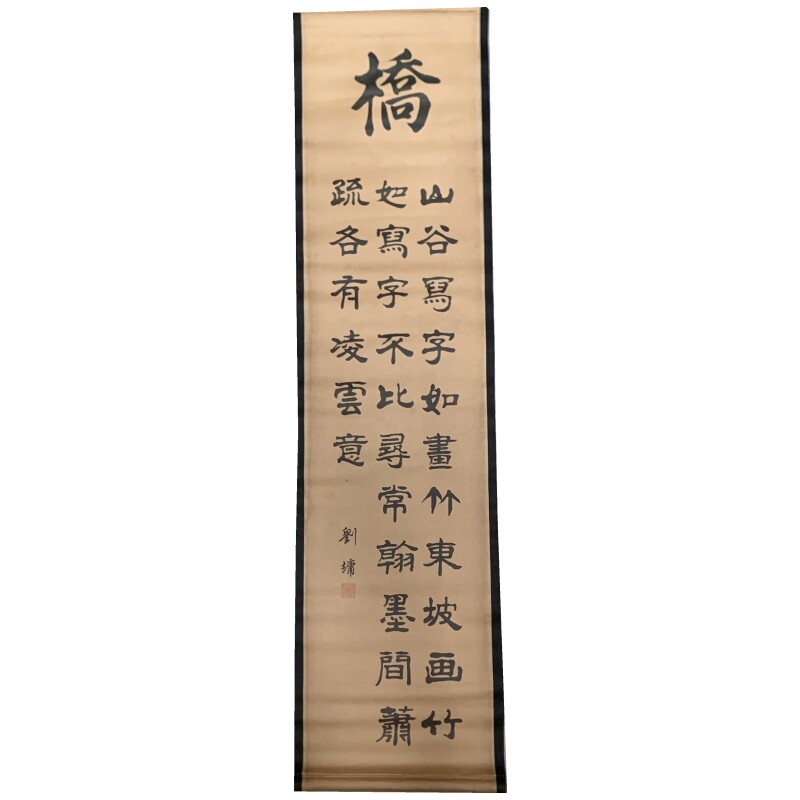 橋
山谷冩字如畫竹東坡画竹
如寫字不比尋常翰墨間蕭
疏各有凌雲意
劉墉